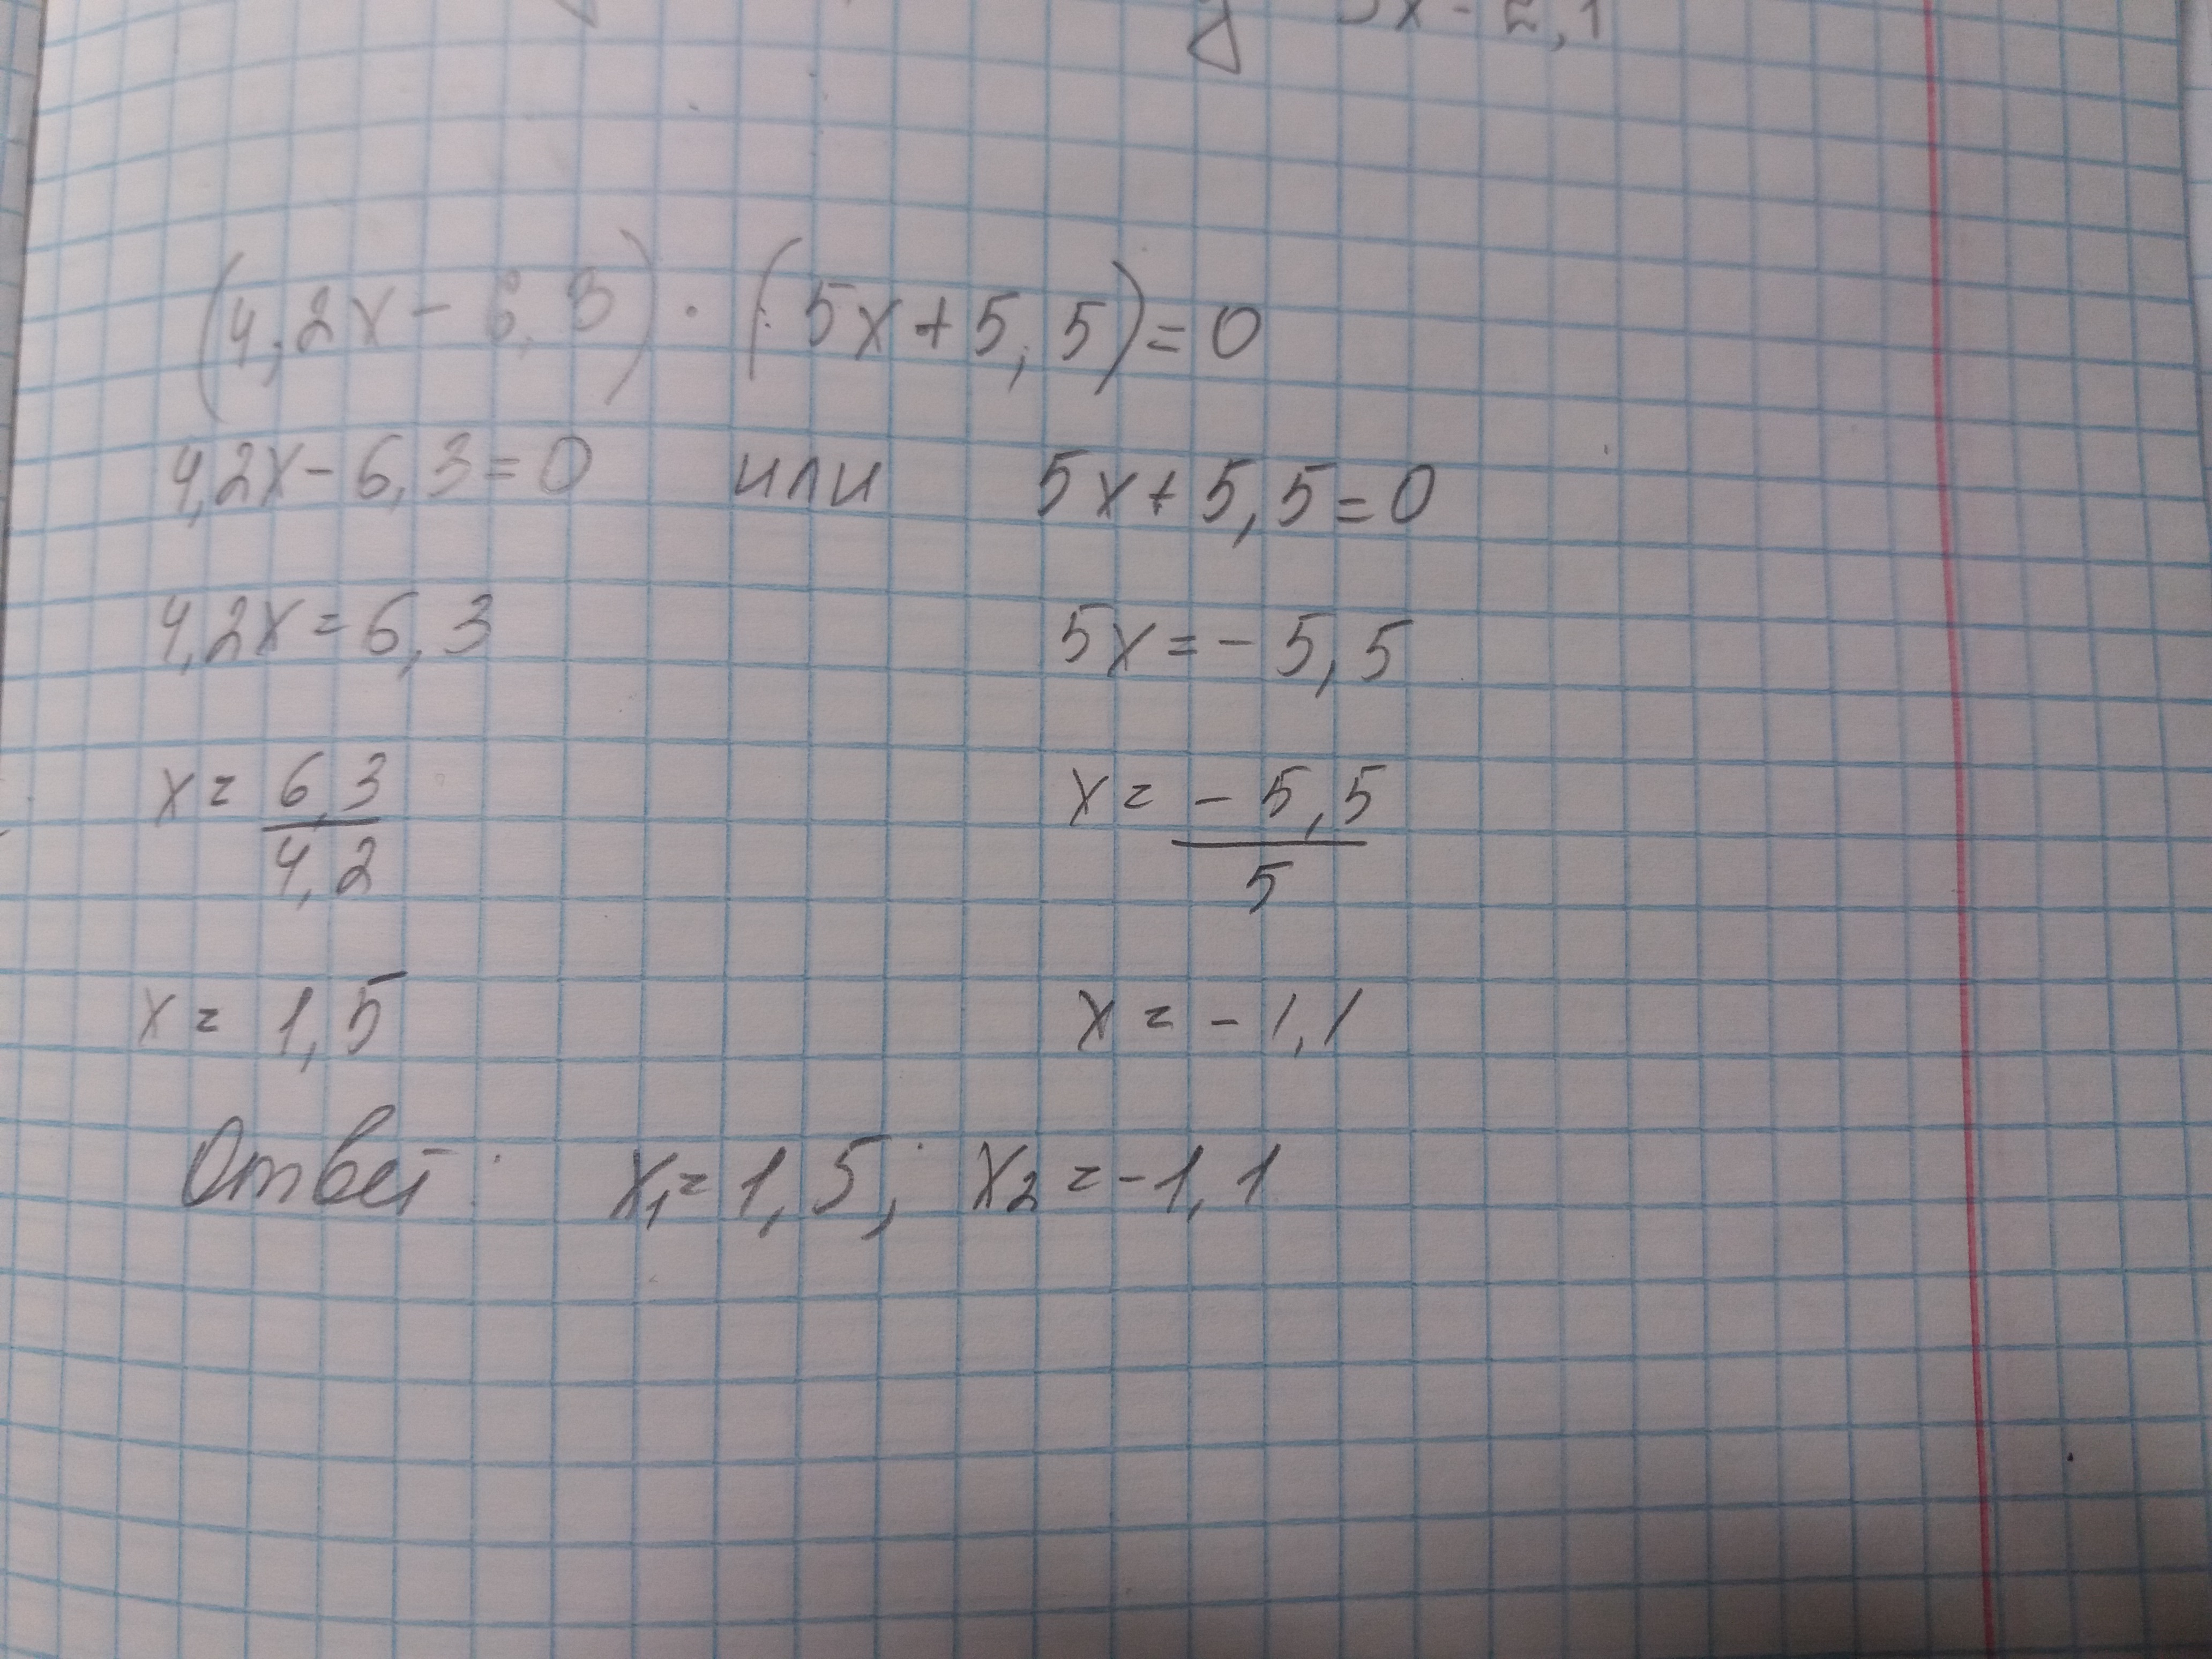 x - 2,1
(4,2x - 6,3) · (5x + 5,5) = 0
4,2x - 6,3 = 0 или 5x + 5,5 = 0
4,2x = 6,3 5x = - 5,5
x = 6,3/4,2 x = - 5,5/5
x = 1,5 x = - 1,1
Ответ: x₁ = 1,5; x₂ = -1,1